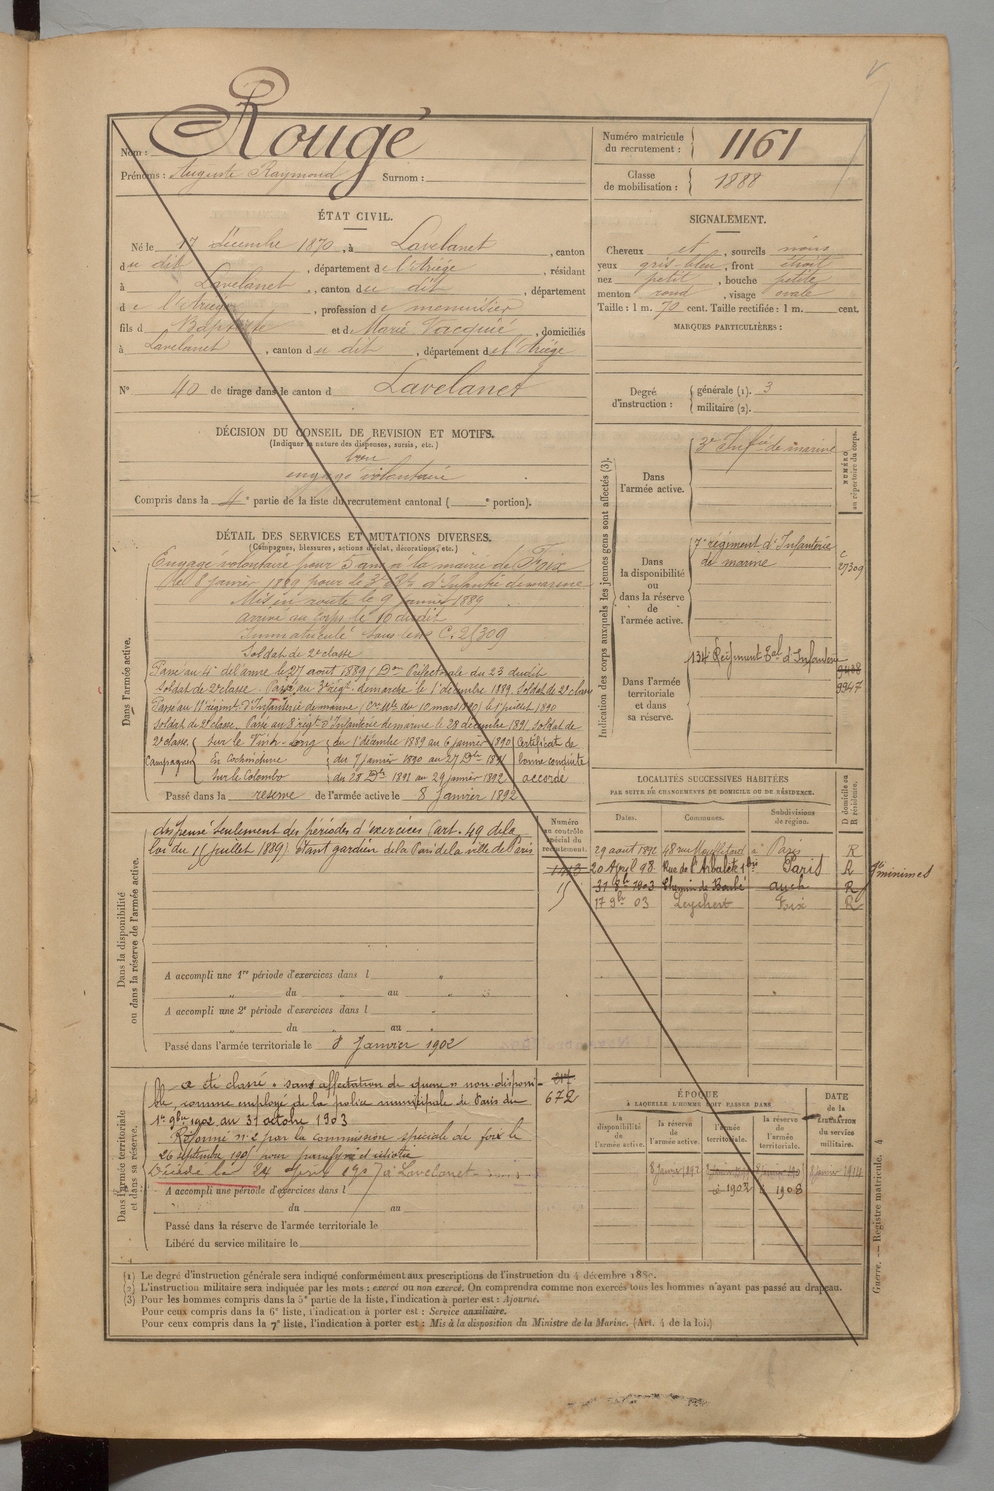 Nom : Rougé
Prénoms : Auguste Raymond Surnom :
Numéro matricule du recrutement : 1161
Classe de mobilisation : 1888
ÉTAT CIVIL.
Né le 17 décembre 1870, à Lavelanet, canton
du dit, département de l'Ariège, résidant
à Lavelanet, canton du dit, département
de l'Ariège, profession de menuisier
fils d Baptiste et de Marie Vacquié, domiciliés
à Lavelanet, canton du dit, département de l'Ariège
N° 40 de tirage dans le canton d Lavelanet
SIGNALEMENT.
Cheveux et, sourcils noirs
yeux gris bleu, front étroit
nez petit, bouche petite
menton rond, visage ovale
Taille : 1 m. 70 cent. Taille rectifiée : 1 m. cent.
MARQUES PARTICULIÈRES :
Degré d'instruction : générale (1). 3
militaire (2).
DÉCISION DU CONSEIL DE REVISION ET MOTIFS.
(Indiquer la nature des dispenses, sursis, etc.)
bon
engagé volontaire
Compris dans la 4e partie de la liste du recrutement cantonal ( e portion).
DÉTAIL DES SERVICES ET MUTATIONS DIVERSES.
(Campagnes, blessures, actions d'éclat, décorations, etc.)
Dans l'armée active.
Engagé volontaire pour 5 ans à la mairie de Foix
le 8 janvier 1889 pour le 3e Rt d'Infantie de marine
Mis en route le 9 janvier 1889
arrivé au corps le 10 du dit
Immatriculé sous le n° C. 27309
Soldat de 2e classe
Passé au 4e de l'arme le 27 août 1889 (Don Préfectorale du 23 dudit
Soldat de 2e classe. Passé au 3e régt de marche le 1er décembre 1889. Soldat de 2e classe
Passé au 11e régiment d'Infanterie de marine ( du 10 mars 1890) le 1er juillet 1890
Soldat de 2e classe. Passé au 8e régt d'Infanterie de marine le 28 décembre 1891. Soldat de
2e classe.
Campagnes
Sur le Vinh-Long du 1er décembre 1889 au 6 janvier 1890
En Cochinchine du 7 janvier 1890 au 27 Dbre 1891
Sur le Colombo du 28 Dbre 1891 au 29 janvier 1892
Certificat de bonne conduite accordé
Passé dans la réserve de l'armée active le 8 Janvier 1892
Indication des corps auxquels les jeunes gens sont affectés (3).
Dans l'armée active. 3e Infie de marine
NUMÉRO au répertoire du corps.
Dans la disponibilité ou dans la réserve de l'armée active.
7e régiment d'Infanterie de marine
C 27309
Dans l'armée territoriale et dans sa réserve.
134e Régiment Tal d'Infanterie
9418
9347
Dans la disponibilité ou dans la réserve de l'armée active.
dispensé seulement des périodes d'exercices (art. 49 de la
loi du 15 juillet 1889) étant gardien de la Paix de la ville de Paris
Numéro au contrôle spécial du recrutement.
1413
15
A accompli une 1re période d'exercices dans l
du au
A accompli une 2e période d'exercices dans l
du au
Passé dans l'armée territoriale le 8 Janvier 1902
LOCALITÉS SUCCESSIVES HABITÉES
PAR SUITE DE CHANGEMENTS DE DOMICILE OU DE RÉSIDENCE.
Dates. Communes. Subdivisions de région. D domicile ou R résidence.
29 août 1892 48 rue à Paris R
20 Avril 98 Rue de l'Arbalète 1 bis Paris R
des minimes
31 8bre 1903 Chemin de Auch R
17 9bre 03 Leychert Foix R
Dans l'armée territoriale et dans sa réserve.
a été classé « sans affectation de guerre » non-disponi-
ble, comme employé de la police municipale de Paris du
1er 9bre 1902 au 31 octobre 1903
Réformé n° 2 par la commission spéciale de Foix le
26 septembre 1905 pour
Décédé le 24 Avril 1907 à Lavelanet
217
672
A accompli une période d'exercices dans l
du au
Passé dans la réserve de l'armée territoriale le
Libéré du service militaire le
ÉPOQUE
À LAQUELLE L'HOMME DOIT PASSER DANS
la disponibilité de l'armée active. la réserve de l'armée active. l'armée territoriale. la réserve de l'armée territoriale. DATE de la LIBÉRATION du service militaire.
8 janvier 1892
1902
1908
janvier 1914
(1) Le degré d'instruction générale sera indiqué conformément aux prescriptions de l'instruction du 4 décembre 1889.
(2) L'instruction militaire sera indiquée par les mots : exercé ou non exercé. On comprendra comme non exercés tous les hommes n'ayant pas passé au drapeau.
(3) Pour les hommes compris dans la 5e partie de la liste, l'indication à porter est : Ajourné.
Pour ceux compris dans la 6e liste, l'indication à porter est : Service auxiliaire.
Pour ceux compris dans la 7e liste, l'indication à porter est : Mis à la disposition du Ministre de la Marine. (Art. 4 de la loi.)
Guerre. — Registre matricule. 4